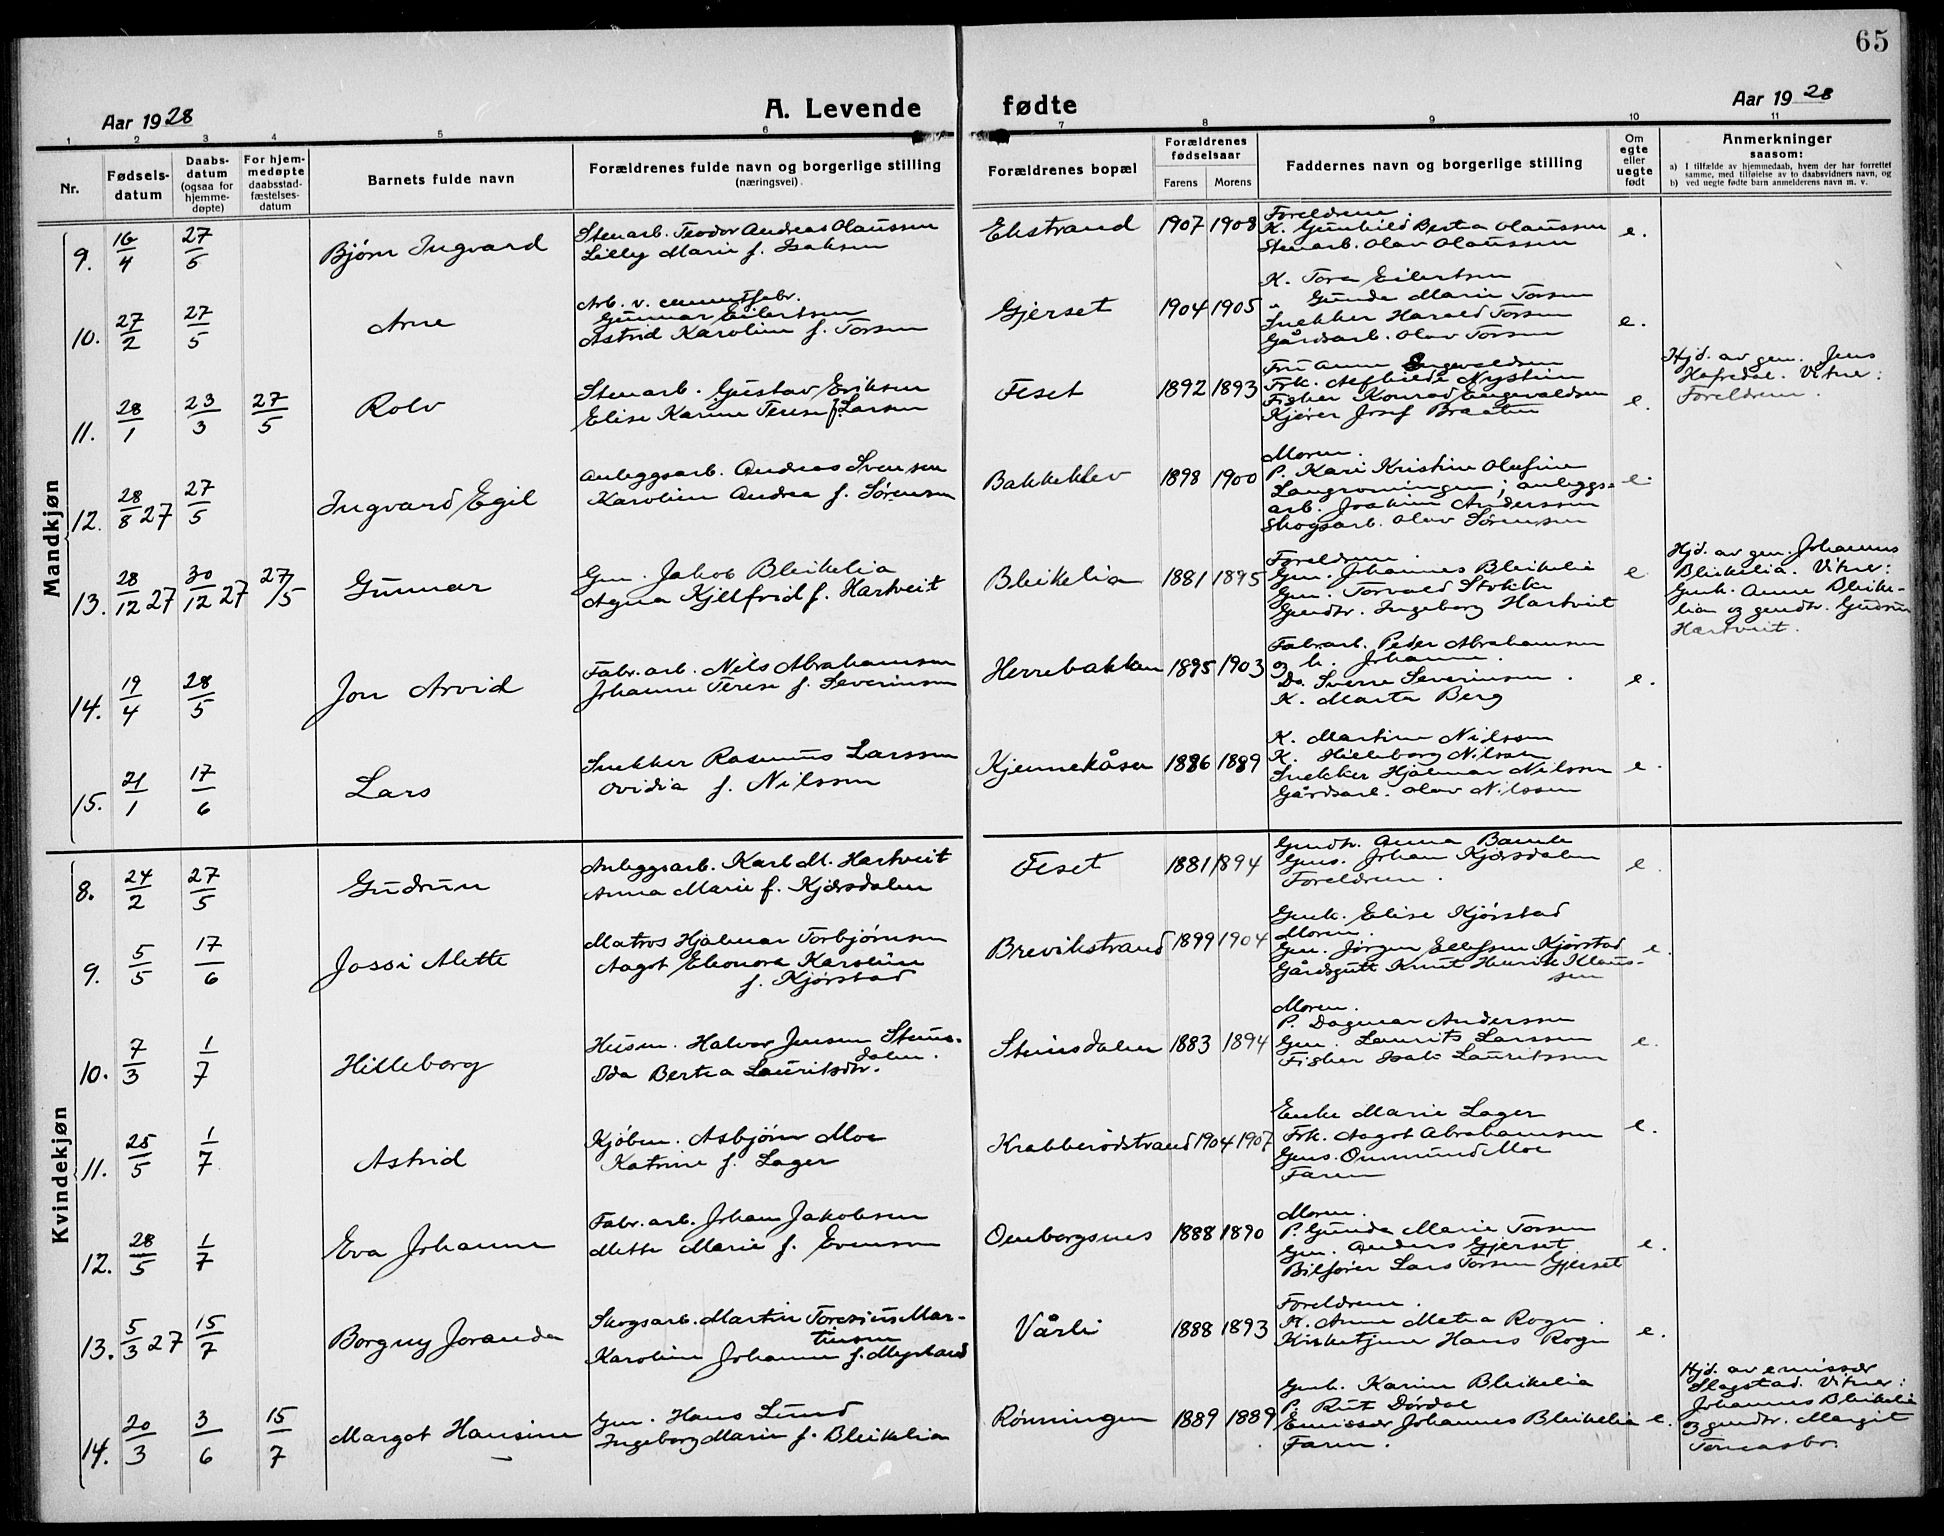 65
Aar 1928
A. Levende fødte
Aar 1928
1 2 3 4 5 6 7 8 9 10 11
Nr.
Fødsels-
datum
Daabs-
datum
(ogsaa for
hjemme-
døpte)
For hjem-
medøpte
daabsstad-
fæstelses-
datum
Barnets fulde navn
Forældrenes fulde navn og borgerlige stilling
(næringsvei).
Forældrenes bopæl
Forældrenes
fødselsaar
Farens Morens
Faddernes navn og borgerlige stilling
Om
egte
eller
uegte
født
Anmerkninger
saasom:
a) I tilfælde av hjemmedaab, hvem der har forrettet
samme, med tilføielse av to daabsvidners navn, og
b) ved uegte fødte barn anmelderens navn m. v.
Mandkjøn
9. 16/4 27/5 Bjørn Ingvard
Stenarb. Teodor Andreas Olaussen
Lilly Marie f. Isaksen
Ekstrand 1907 1908
Foreldrene.
K. Gunhild Bertea Olaussen
Stenarb. Olav Olaussen
e.
10. 27/2 27/5 Arne
Arb. v. cementfabr.
Gunnar Eilertsen
Astrid Karoline f. Torsen
Gjerset 1904 1905
K. Tora Eilertsen
" Gunda Marie Torsen
Snekker Harald Torsen
Gårdsarb. Olav Torsen
e.
11. 28/1 23/3 27/5 Rolv
Stenarb. Gustav Eriksen
Elise Karine Terese f. Larsen
Feset 1892 1893
Fru Anne Engevaldsen
Frk. Alfhilde Nystein
Fisker Konrad Engevaldsen
Kjører Josef Braaten
e.
Hjd. av gen. Jens
Hafredal. Vitner:
Foreldrene.
12. 28/8 27 27/5 Ingvard Egil
Anleggsarb. Andreas Svensen
Karoline Andrea f. Sørensen
Bakkeklev 1898 1900
Moren.
P. Kari Kristine Olufine
Langrønningen; anleggs-
arb. Joakim Anderssen
Skogsarb. Olav Sørensen
e.
13. 28/12 27 30/12 27 27/5 Gunnar
Gm. Jakob Bleikelia
Agna Kjellfrid f. Hartveit
Bleikelia 1881 1895
Foreldrene.
Gm. Johannes Bleikelia
Gm. Torvald Stokke
Gmdtr. Ingeborg Hartveit
e.
Hjd. av gm. Johannes
Bleikelia. Vitner:
Gmk. Anne Bleike-
lia og gmdtr. Gudrun
Hartveit.
14. 19/4 28/5 Jon Arvid
Fabr.arb. Nils Abrahamsen
Johanne Terese f. Severinsen
Herrebakken 1895 1903
Fabr.arb. Peder Abrahamsen
og h. Johanne.
Do. Sverre Severinsen.
K. Marta Berg
e.
15. 21/1 17/6 Lars
Snekker Rasmus Larssen
Ovidia f. Nilssen
Kjennekåsa 1886 1889
K. Martine Nilssen
K. Hilleborg Nilssen
Snekker Hjalmar Nilssen
Gårdsarb. Olav Nilssen
e.
Kvindekjøn
8. 24/2 27/5 Gudrun
Anleggsarb. Karl M. Hartveit
Anna Marie f. Kjørsdalen
Feset 1881 1894
Gmdtr. Anna Bamle
Gms. Johan Kjørsdalen
Foreldrene.
e.
9. 5/5 17/6 Jossi Alette
Matros Hjalmar Torbjørnsen
Aagot Eleonora Karoline
f. Kjørstad
Brevikstrand 1899 1904
Gmk. Elise Kjørstad
Moren.
Gm. Jørgen Ellefsen Kjørstad
Gårdsgutt Knut Henrik Klaus-
sen
e.
10. 7/3 1/7 Hilleborg
Husm. Halvor Jensen Steins-
dalen.
Ida Bertea Lauritsdtr.
Steinsdalen 1883 1894
Moren.
P. Dagmar Anderssen
Gm. Laurits Larssen
Fisker Isak Lauritssen
e.
11. 25/5 1/7 Astrid
Kjøbm. Asbjørn Moe
Katrine f. Lager
Krabberødstrand 1904 1907
Enke Marie Lager
Frk. Aagot Abrahamsen
Gms. Ommund Moe
Faren
e.
12. 28/5 1/7 Eva Johanne
Fabr.arb. Johan Jakobsen
Mette Marie f. Evensen
Omborgsnes 1888 1890
Moren.
P. Gunda Marie Torsen
Gm. Anders Gjerset
Bilfører Lars Torsen Gjerset
e.
13. 5/3 27 15/7 Borgny Joranda
Skogsarb. Martin Toresius Mar-
tinsen
Karoline Johanne f. Myrland
Vårli 1888 1893
Foreldrene.
K. Anne Metea Rogn.
Kirketjener Hans Rogn
e.
14. 20/3 3/6 15/7 Margot Hansine
Gm. Hans Lund
Ingeborg Marie f. Bleikelia
Rønningen 1889 1889
Gmk. Karine Bleikelia
P. Rut Dørdal
Emissær Johannes Bleikelia
Faren.
e.
Hjd. av emissær
Slagstad. Vitner:
Johannes Bleikelia
og gmdtr. Margit